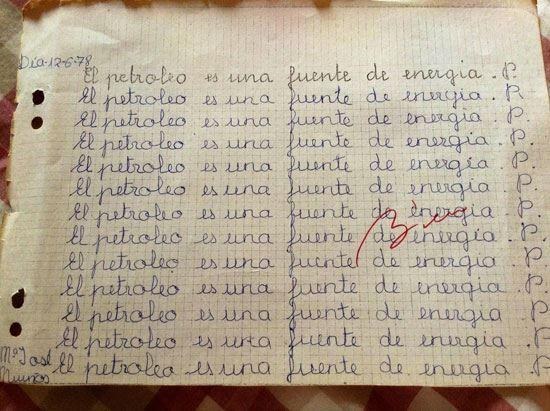 Día-12-6-78
El petroleo es una fuente de energia. P.
El petroleo es una fuente de energía. P.
El petroleo es una fuente de energía. P.
El petroleo es una fuente de energía. P.
El petroleo es una fuente de energía. P.
El petroleo es una fuente de energía. P.
El petroleo es una fuente de energía. P.
El petroleo es una fuente de energía. P.
El petroleo es una fuente de energía. P.
El petroleo es una fuente de energia. P.
El petroleo es una fuente de energia. P.
El petroleo es una fuente de energia. P.
Mª José El petroleo es una fuente de energia. P.